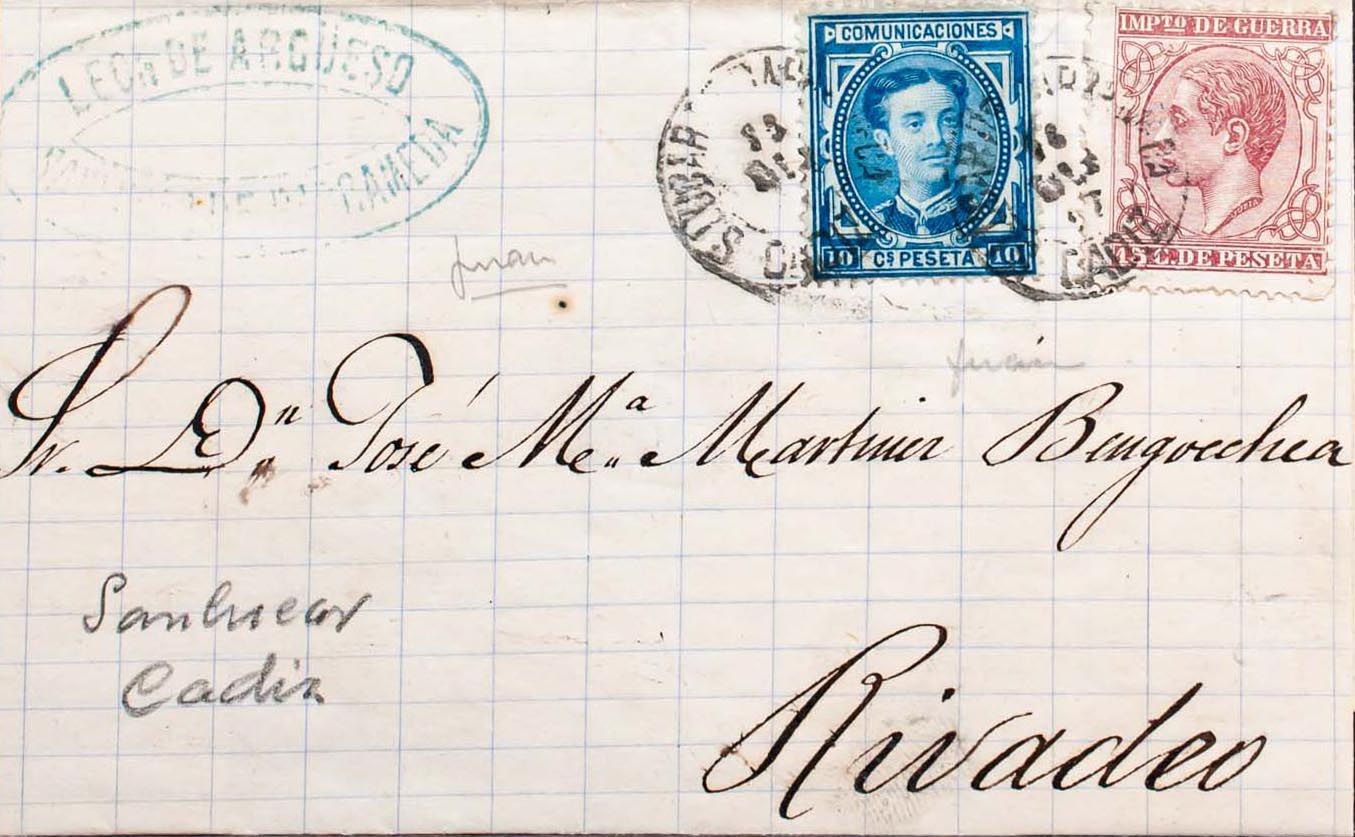 LEON DE ARGÜESO
BARRAMEDA
COMUNICACIONES
10 CS PESETA 10
IMPTO DE GUERRA
15 C. DE PESETA
CADIZ
Juan
Juan
Sr. Dn. José Ma. Martinez Bengoechea
Sanlucar
Cadiz
Rivadeo